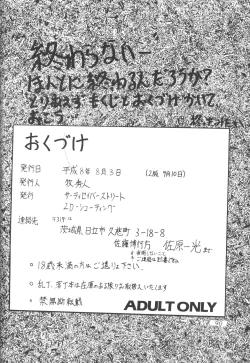 終わらないー
ほんとに終わるんだろうか?
とりあえず まくじとおくづけかいて
おこう
おくづけ
発行日 平成8年8月3日 (2版 9月10日)
発行人
発行 サーティセイバーストリート
2D・シューティング
連絡先 〒319-12
茨城県日立市久慈町3-18-8
佐藤博行方 佐原一光まで
○18歳未満の方はご遠り下さい。
○乱丁、落丁本は在庫のある限りお取替えいたします
○禁無断転載
ADULT ONLY